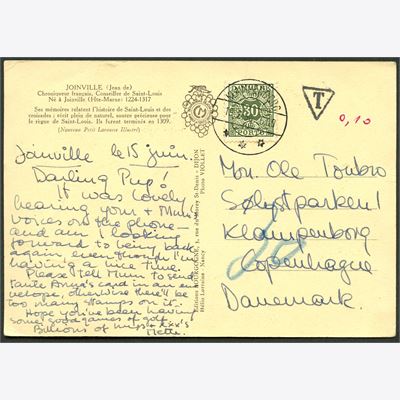 JOINVILLE (Jean de)
Chroniqueur français, Conseiller de Saint-Louis
Né à Joinville (Hte-Marne) 1224-1317
Ses mémoires relatent l'histoire de Saint-Louis et des
croisades; récit plein de naturel, source précieuse pour
le règne de Saint-Louis. Ils furent terminés en 1309.
(Nouveau Petit Larousse Illustré)
Joinville le 15 juin
Darling Pup!
It was lovely
hearing your & Mum's
voices on the phone –
and am looking
forward to being back
again even though I'm
having a nice time.
Please tell Mum to send
tante Anya's card in an en-
velope, otherwise there'll be
too many stamps on it.
Hope you've been having
some good games of golf.
Billions of + xxx's
Mette.
DANMARK
30
PORTO
T
0,10
Mon. Ole Tonbro
Sølystparken 1
Klampenborg
Copenhague
Danemark.